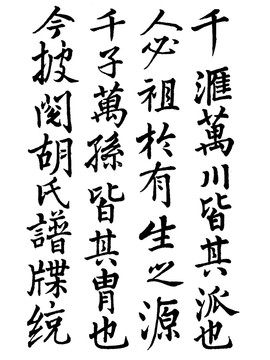 千滙萬川皆其派也
人必祖於有生之源
千子萬孫皆其胄也
今披閱胡氏譜牒統